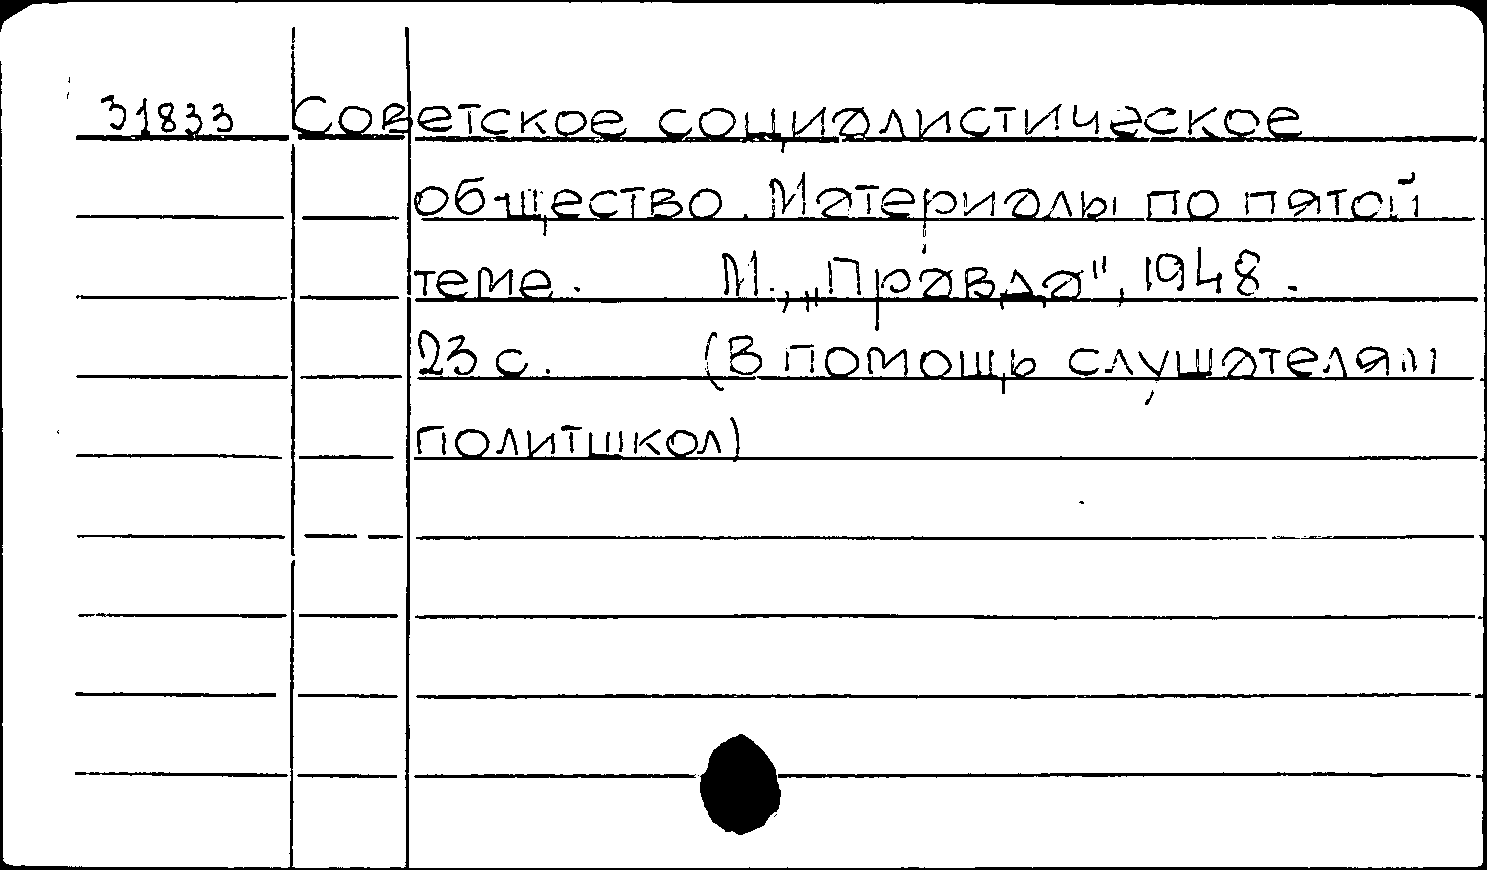 31833 Советское социалистическое
общество. Материалы по пятой
теме. М., „Правда", 1948.
23 с. (В помощь слушателям
политшкол)